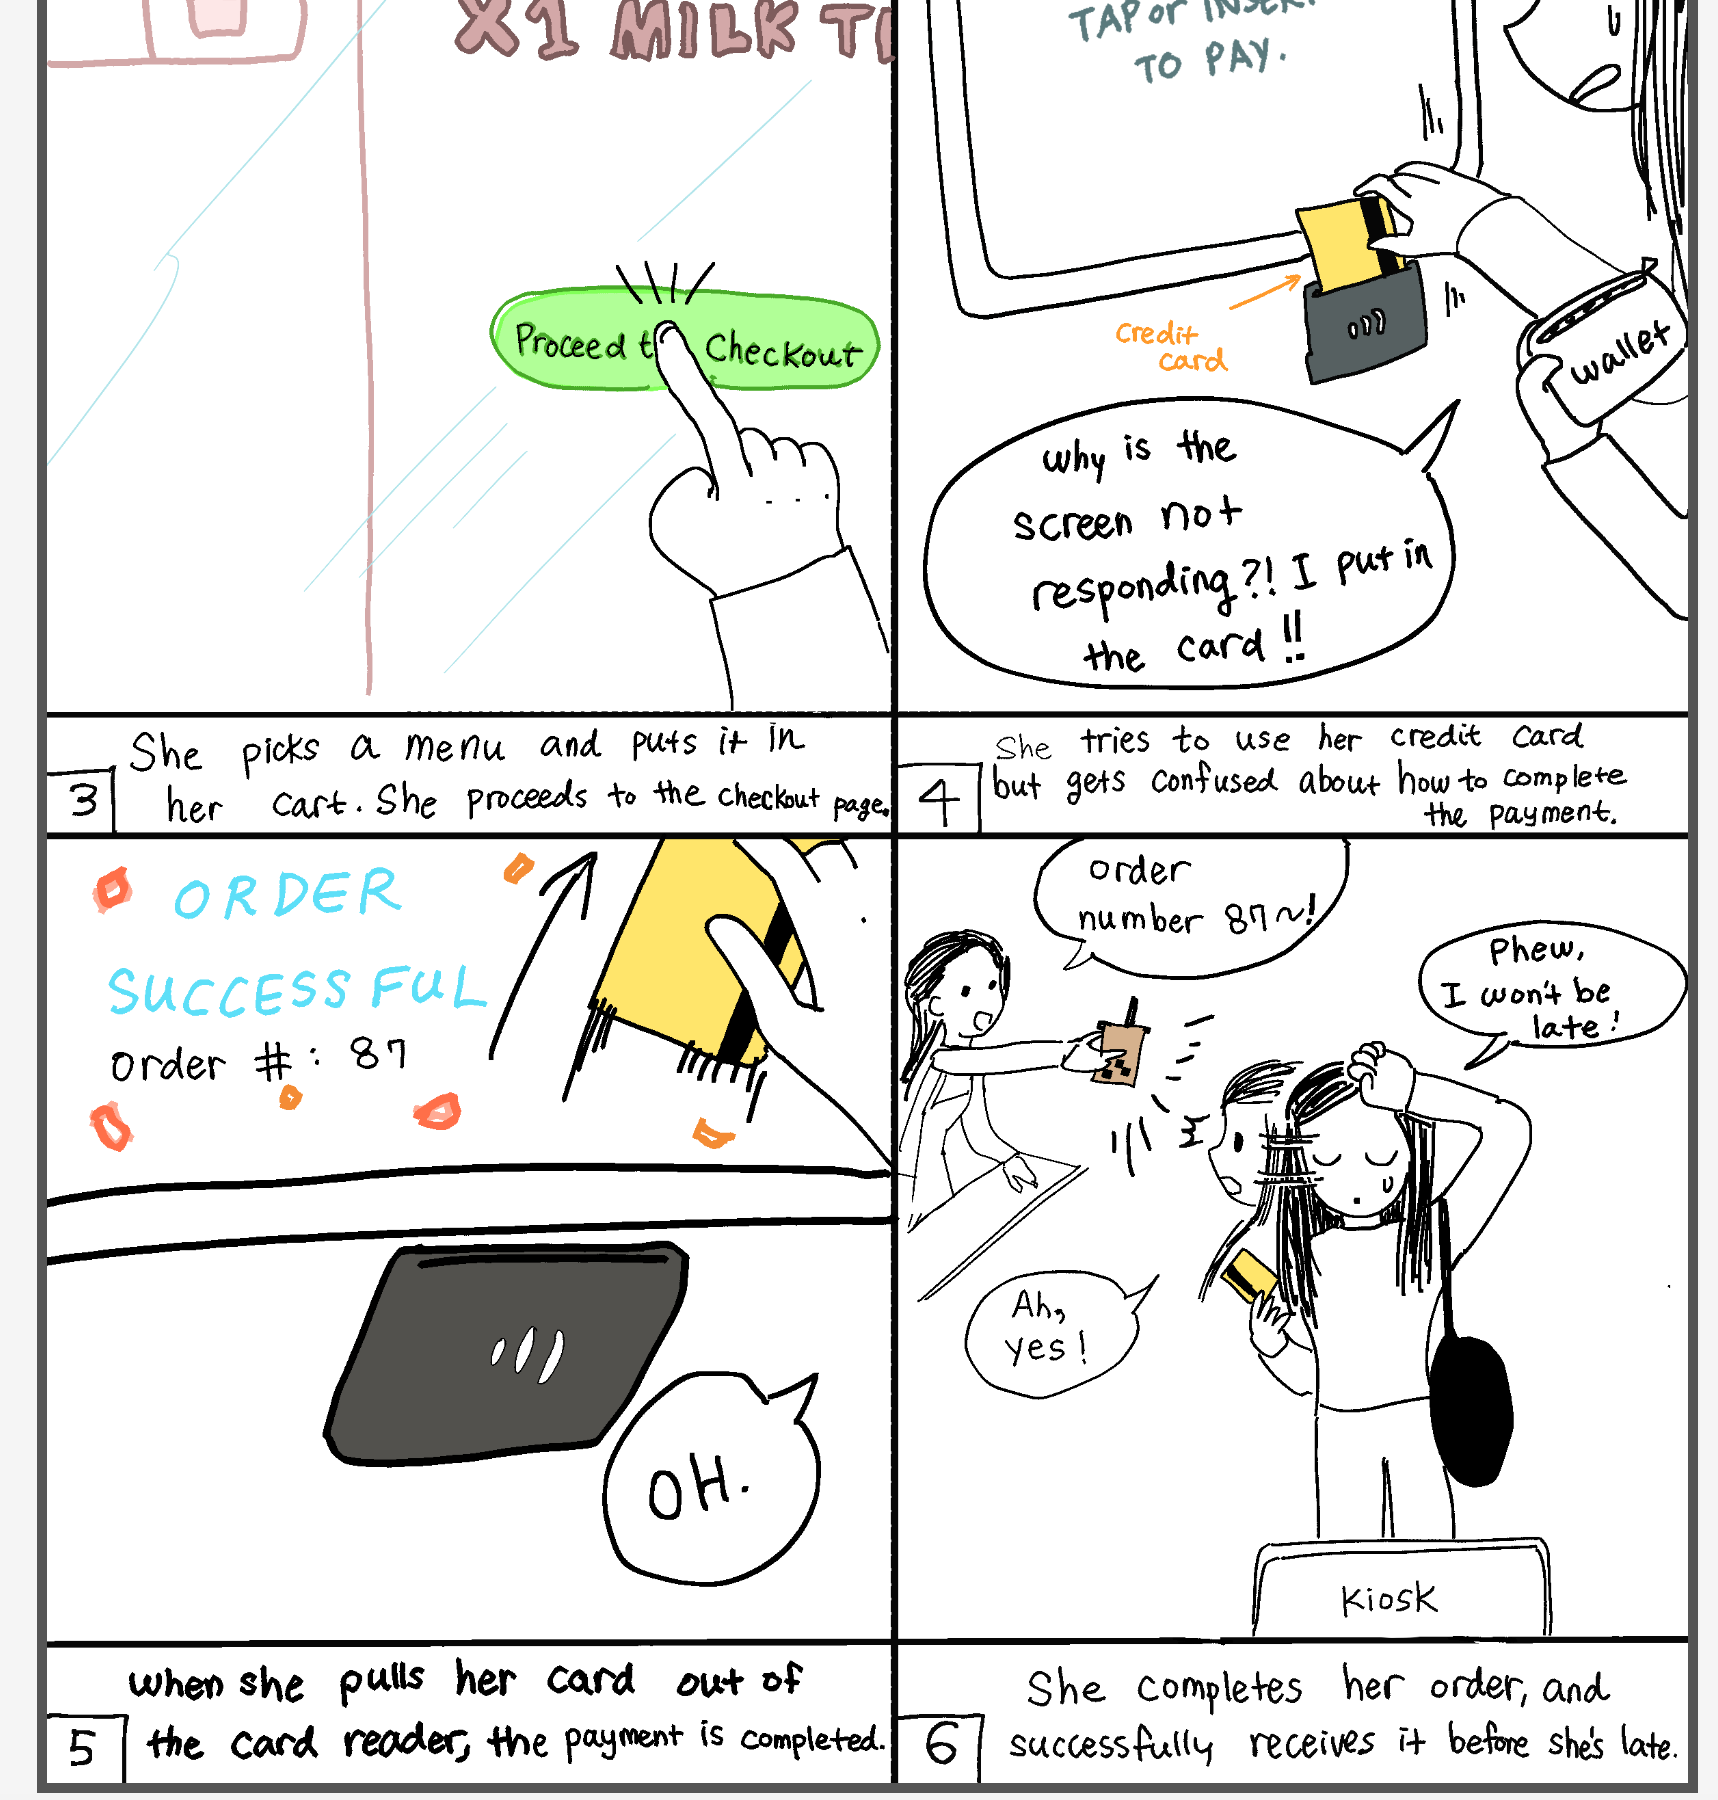 X1 MILK
Proceed t Checkout
She picks a menu and puts it in
3
her cart. She proceeds to the checkout page.
TAP or INSERT
TO PAY.
credit
card
wallet
why is the
screen not
responding?! I put in
the card!!
She tries to use her credit card
4
but gets confused about how to complete
the payment.
ORDER
SUCCESSFUL
order #: 87
OH.
when she pulls her card out of
5
the card reader, the payment is completed.
order
number 87~!
Phew,
I won't be
late!
Ah,
yes!
Kiosk
She completes her order, and
6
successfully receives it before she's late.